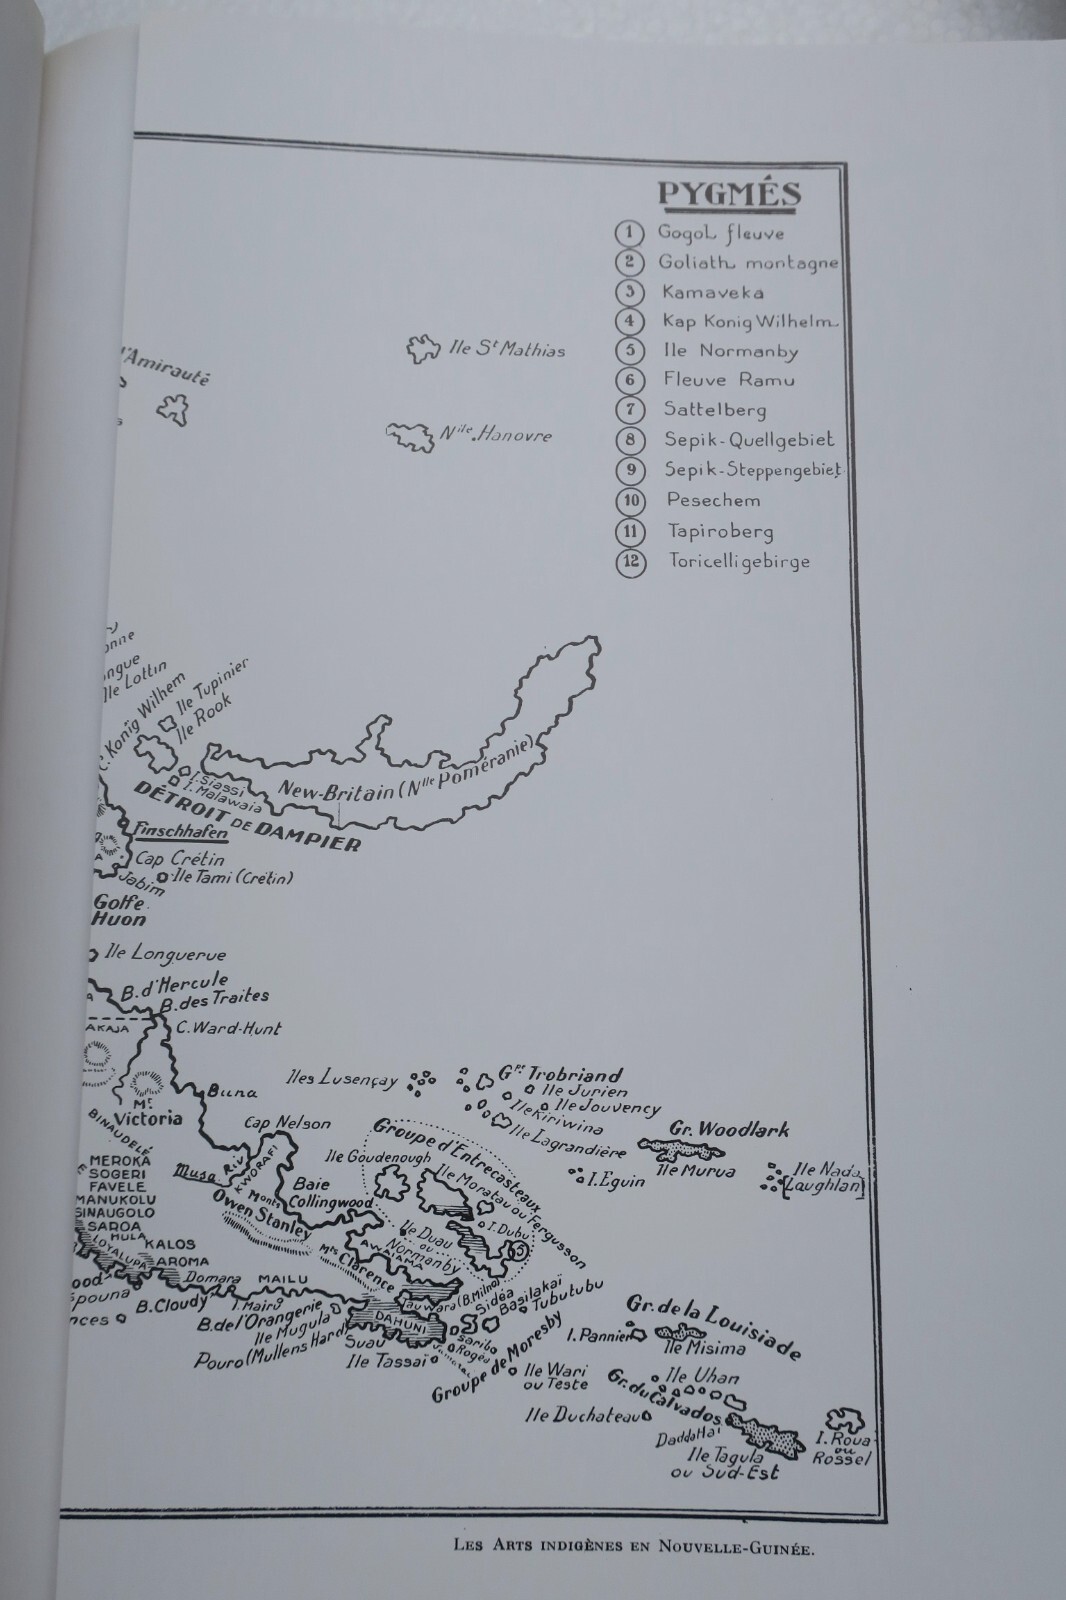 PYGMÉS
1 Gogol fleuve
2 Goliath montagne
3 Kamaveka
4 Kap Konig Wilhelm
5 Ile Normanby
6 Fleuve Ramu
7 Sattelberg
8 Sepik-Quellgebiet
9 Sepik-Steppengebiet
10 Pesechem
11 Tapiroberg
12 Toricelligebirge
l'Amirauté
Ile St Mathias
Nlle. Hanovre
Ile Lottin
C. Konig Wilhem
Ile Tupinier
Ile Rook
I. Siassi
I. Malawaia
New-Britain (Nlle Poméranie)
DÉTROIT DE DAMPIER
Finschhafen
Cap Crétin
Ile Tami (Crétin)
Jabim
Golfe
Huon
Ile Longuerue
B. d'Hercule
B. des Traites
AKAJA
C. Ward-Hunt
Mt
Victoria
Buna
Iles Lusençay
Gpe Trobriand
Ile Jurien
Ile Jouvency
Ile Kiriwina
Ile Lagrandière
Gr. Woodlark
Ile Murua
Ile Nada
[Laughlan]
I. Eguin
BINAUDELÉ
Cap Nelson
Groupe d'Entrecasteaux
Ile Goudenough
Ile Moratau ou Fergusson
MEROKA
SOGERI
FAVELE
MANUKOLU
SINAUGOLO
SAROA
HULA
LOYALUPA
KALOS
AROMA
Musa Riv.
KWORAFI
Baie
Collingwood
Monts
Owen Stanley
I. Dubu
Ile Duau
ou
Normanby
5
AWAIAMA
Mts Clarence
Domara
MAILU
B. Cloudy
I. Mairu
B. de l'Orangerie
Ile Mugula
Pouro (Mullens Hard
Tauwara (B. Milne)
DAHUNI
Suau
Ile Tassai
Sidéa
Basilakai
Tubutubu
Sariba
Rogea
Groupe de Moresby
Gr. de la Louisiade
I. Pannier
Ile Misima
Ile Wari
ou Teste
Ile Uhan
Gr. du Calvados
Ile Duchateau
Ile Tagula
ou Sud-Est
I. Roua
ou
Rossel
LES ARTS INDIGÈNES EN NOUVELLE-GUINÉE.